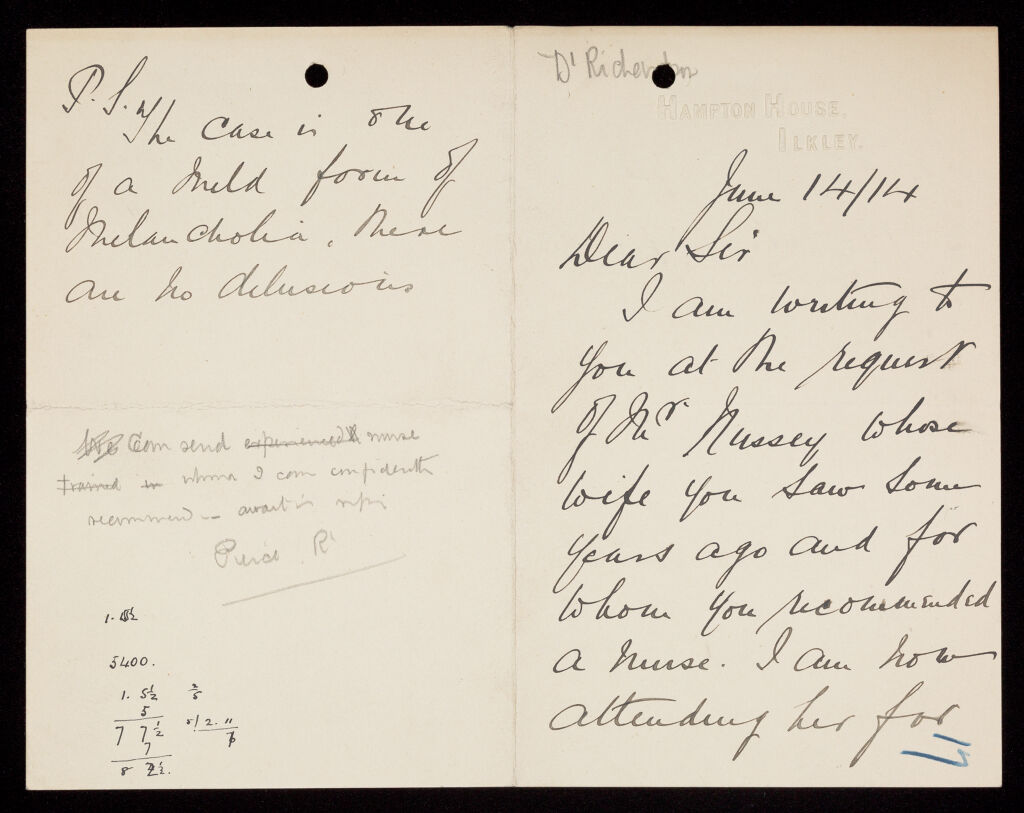 P.S. The case is one
of a mild form of
Melancholia, there
are no delusions
We Can send experienced nurse
trained in whom I can confidently
recommend — await
1. 5½
5400.
1. 5½
5
7 7½
7
8 2½.
Dr Richardson
HAMPTON HOUSE,
ILKLEY.
June 14/14
Dear Sir
I am writing to
you at the request
of Mr Nussey whose
wife you saw some
years ago and for
whom you recommended
a nurse. I am now
attending her for